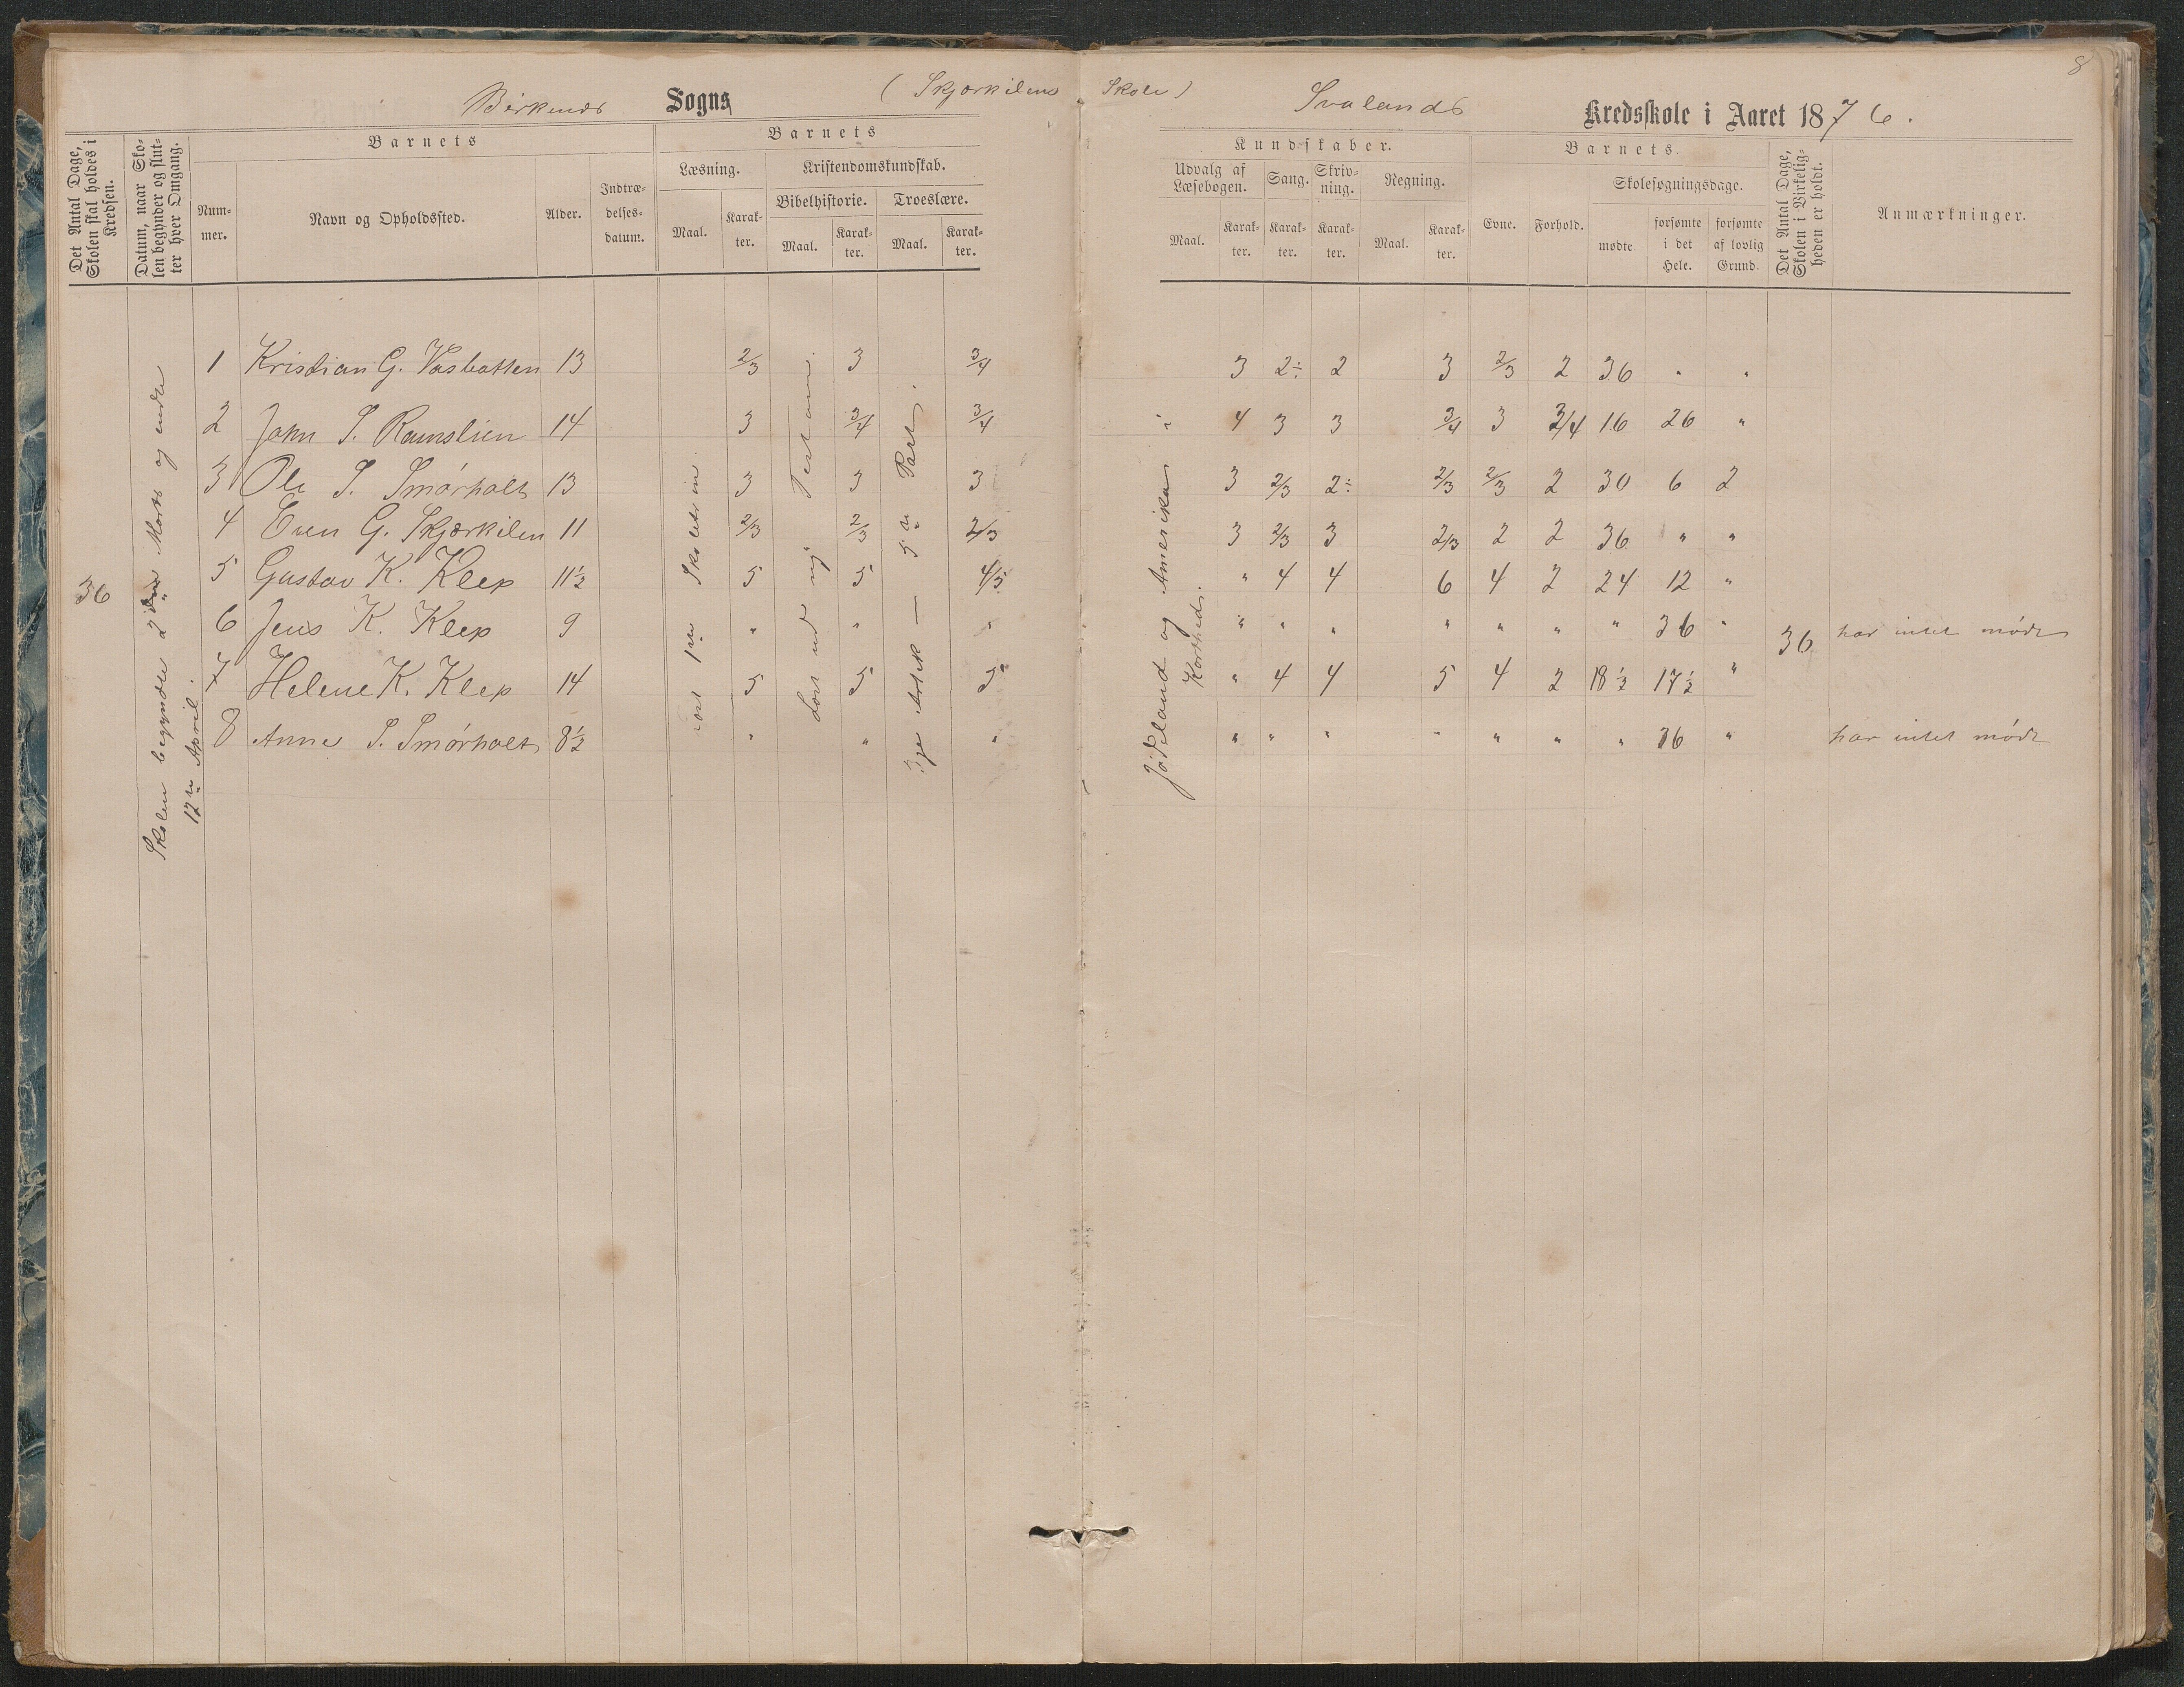 8
Birkenes Sogns ( Skjærkilens Skole ) Svalands Kredsskole i Aaret 1876.
Det Antal Dage, Skolen skal holdes i Kredsen.
Datum, naar Skolen begynder og slutter hver Omgang.
Barnets
Nummer.
Navn og Opholdssted.
Alder.
Indtrædelsesdatum.
Barnets
Læsning.
Maal.
Karakter.
Kristendomskundskab.
Bibelhistorie.
Maal.
Karakter.
Troeslære.
Maal.
Karakter.
Kundskaber.
Udvalg af Læsebogen.
Maal.
Karakter.
Sang.
Karakter.
Skrivning.
Karakter.
Regning.
Maal.
Karakter.
Barnets
Evne.
Forhold.
Skolesøgningsdage.
mødte
forsømte i det Hele.
forsømte af lovlig Grund.
Det Antal Dage, Skolen i Virkeligheden er holdt.
Anmærkninger.
36
Skolen begyndte 2den Marts og endte
12te April.
1 Kristian G. Vasbatten 13 2/3 3 3/4 3 2÷ 2 3 2/3 2 36 " "
2 John S. Ramslien 14 3 3/4 3/4 4 3 3 3/4 3 3/4 16 20 "
3 Ole S. Smørholt 13 3 3 3 3 2/3 2÷ 2/3 2/3 2 30 6 2
4 Even G. Skjærkilen 11 2/3 2/3 2/3 3 2/3 3 2/3 2 2 36 " "
5 Gustav K. Klep 11½ 5 5 4/5 " 4 4 6 4 2 24 12 "
6 Jens K. Klep 9 " " " " " " " " " " 36 " har intet mødt
7 Helene K. Klep 14 5 5 5 " 4 4 5 4 2 18½ 17½ "
8 Anne S. Smørholt 8½ " " " " " " " " " " 36 " har intet mødt
Læst ud nyt Testam.
3die Artik — 5te Part.
Jødeland og Amerika i
Korthed.
36